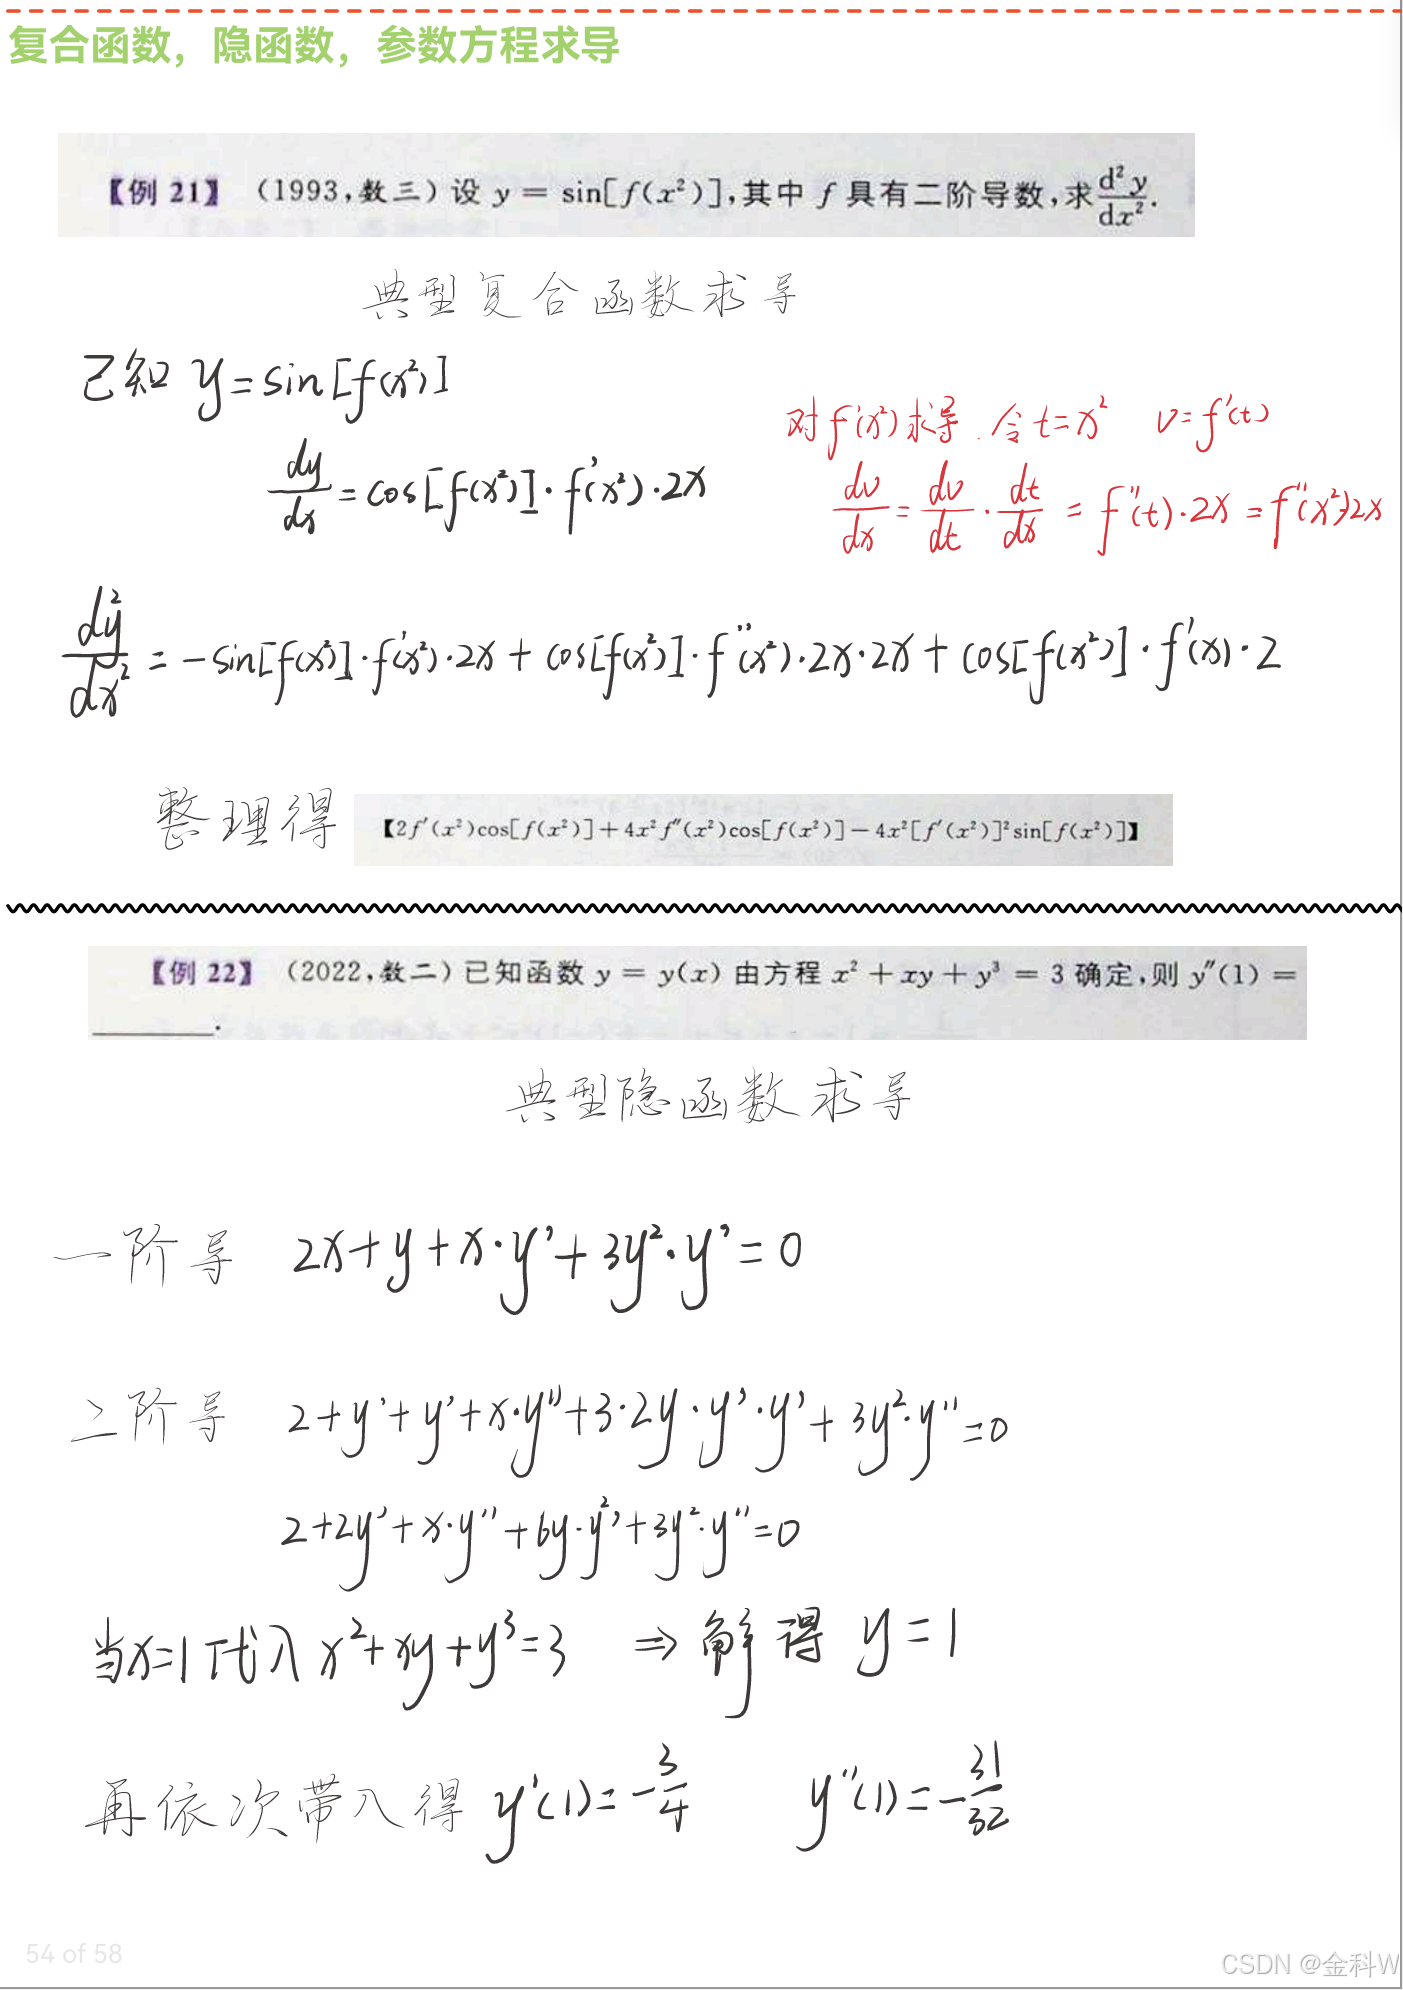 复合函数，隐函数，参数方程求导
【例 21】 (1993,数三) 设 y = sin[f(x²)],其中 f 具有二阶导数,求 d²y/dx².
典型复合函数求导
已知 y=sin[f(x²)]
对f'(x²)求导.令t=x² v=f'(t)
dy/dx=cos[f(x²)]·f'(x²)·2x
dv/dx=dv/dt·dt/dx=f''(t)·2x=f''(x²)·2x
dy²/dx²=-sin[f(x²)]·f'(x²)·2x+cos[f(x²)]·f''(x²)·2x·2x+cos[f(x²)]·f'(x)·2
整理得 【2f′(x²)cos[f(x²)]+4x²f″(x²)cos[f(x²)]−4x²[f′(x²)]²sin[f(x²)]】
【例 22】 (2022,数二) 已知函数 y = y(x) 由方程 x² + xy + y³ = 3 确定,则 y″(1) =
______.
典型隐函数求导
一阶导 2x+y+x·y'+3y²·y'=0
二阶导 2+y'+y'+x·y''+3·2y·y'·y'+3y²·y''=0
2+2y'+x·y''+6y·y'²+3y²·y''=0
当x=1代入x²+xy+y³=3 ⇒解得 y=1
再依次带入得 y'(1)=-3/4 y''(1)=-31/32
54 of 58
CSDN @金科W